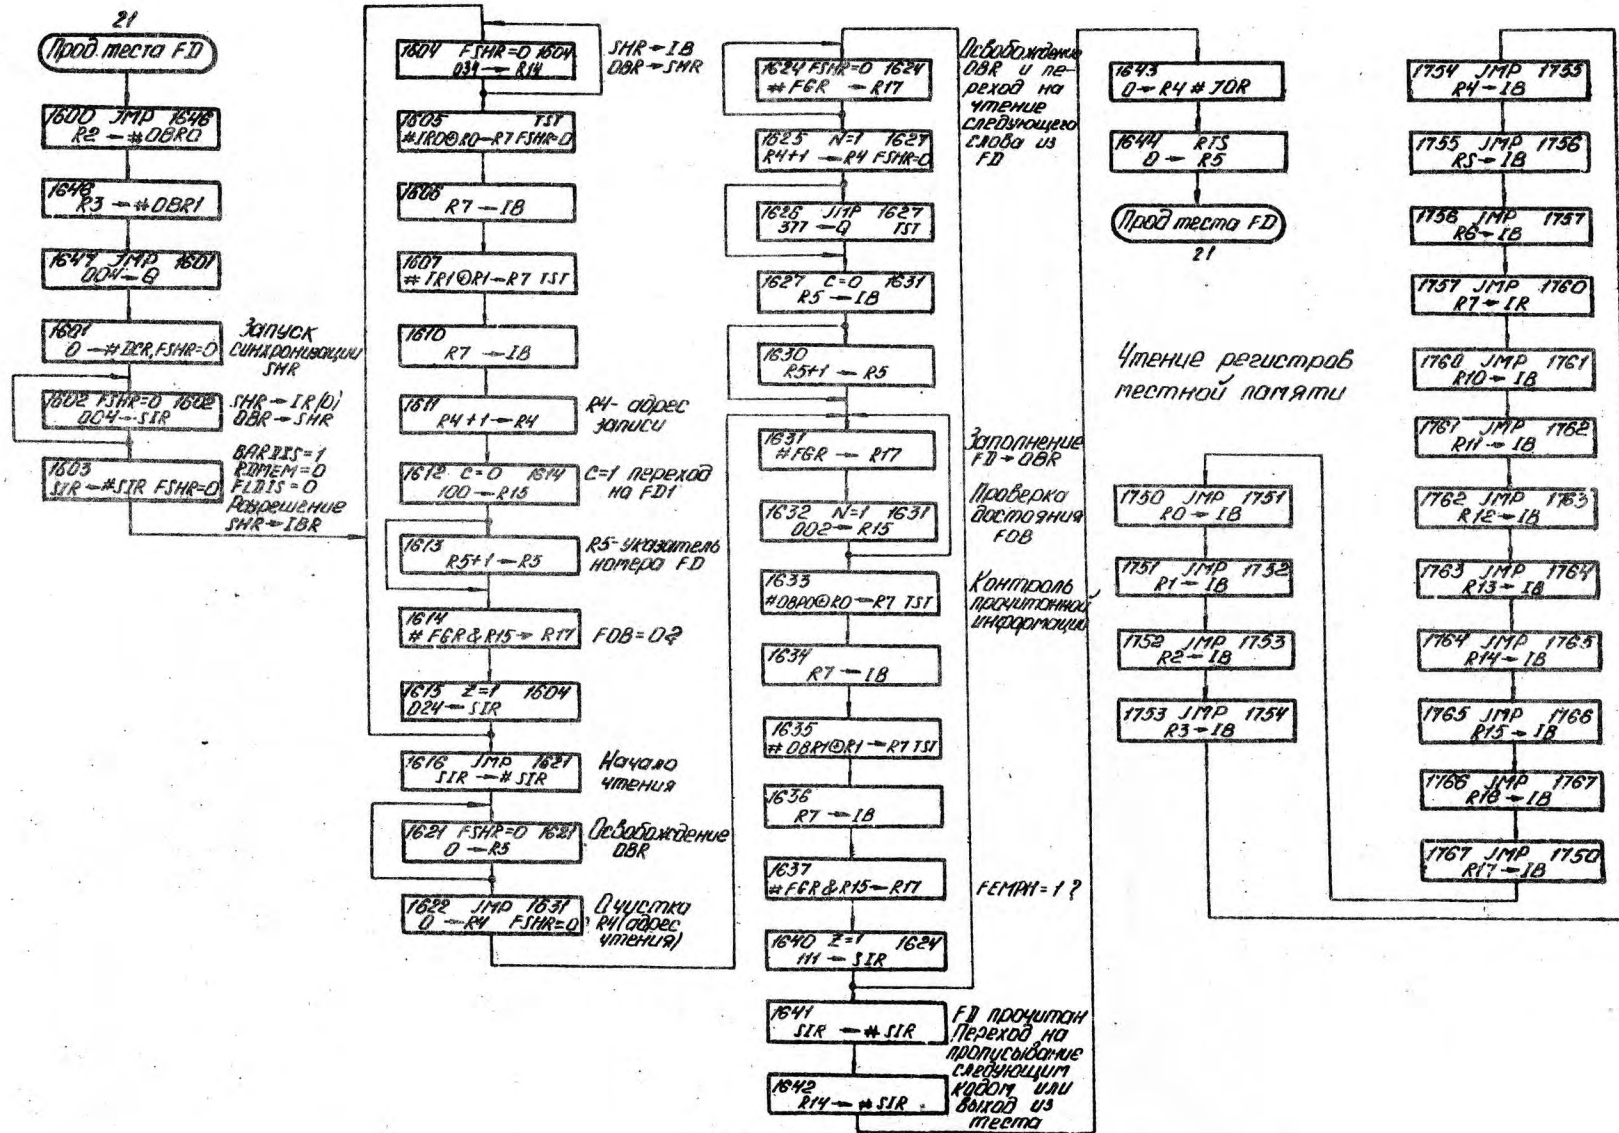 21
Прод. теста FD
1600 JMP 1646
R2 → #OBR0
1646
R3 → #OBR1
1647 JMP 1601
004 → Q
1601
0 → #DCR, FSHR=0
Запуск
синхронизации
SHR
1602 FSHR=0 1602
004 → SIR
SHR → IR(0)
OBR → SHR
1603
SIR → #SIR FSHR=0
BARDIS=1
RDMEM=0
FLDIS=0
Разрешение
SHR → IBR
1604 FSHR=0 1604
034 → R14
SHR → IB
OBR → SHR
1605 TST
#IR0⊕R0 → R7 FSHR=0
1606
R7 → IB
1607
#IR1⊕R1 → R7 TST
1610
R7 → IB
1611
R4+1 → R4
R4- адрес
записи
1612 C=0 1614
100 → R15
C=1 переход
на FD1
1613
R5+1 → R5
R5- указатель
номера FD
1614
#FGR&R15 → R17
FOB=0?
1615 Z=1 1604
024 → SIR
1616 JMP 1621
SIR → #SIR
Начало
чтения
1621 FSHR=0 1621
0 → R5
Освобождение
OBR
1622 JMP 1631
0 → R4 FSHR=0
Очистка
R4(адрес
чтения)
1624 FSHR=0 1624
#FGR → R17
Освобождение
OBR и пе-
реход на
чтение
следующего
слова из
FD
1625 N=1 1627
R4+1 → R4 FSHR=0
1626 JMP 1627
377 → Q TST
1627 C=0 1631
R5 → IB
1630
R5+1 → R5
1631
#FGR → R17
Заполнение
FD → OBR
1632 N=1 1631
002 → R15
Проверка
достояния
FOB
1633
#OBR0⊕R0 → R7 TST
Контроль
прочитанной
информации
1634
R7 → IB
1635
#OBR1⊕R1 → R7 TST
1636
R7 → IB
1637
#FGR&R15 → R17
FEMPH=1?
1640 Z=1 1624
111 → SIR
1641
SIR → #SIR
FD прочитан
Переход на
прописывание
следующим
кодом или
выход из
теста
1642
R14 → #SIR
1643
0 → R4 #JOR
1644 RTS
0 → R5
Прод теста FD
21
Чтение регистров
местной памяти
1750 JMP 1751
R0 → IB
1751 JMP 1752
R1 → IB
1752 JMP 1753
R2 → IB
1753 JMP 1754
R3 → IB
1754 JMP 1755
R4 → IB
1755 JMP 1756
R5 → IB
1756 JMP 1757
R6 → IB
1757 JMP 1760
R7 → IR
1760 JMP 1761
R10 → IB
1761 JMP 1762
R11 → IB
1762 JMP 1763
R12 → IB
1763 JMP 1764
R13 → IB
1764 JMP 1765
R14 → IB
1765 JMP 1766
R15 → IB
1766 JMP 1767
R16 → IB
1767 JMP 1750
R17 → IB